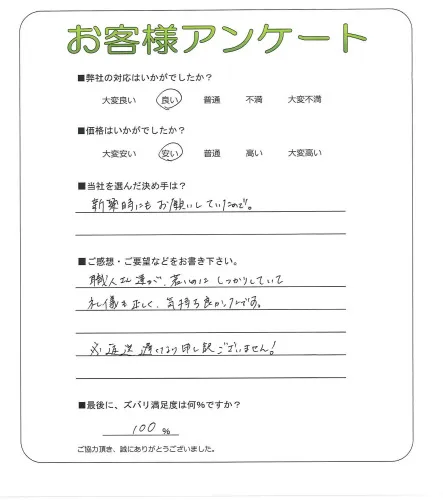 お客様アンケート
■弊社の対応はいかがでしたか？
大変良い 良い 普通 不満 大変不満
■価格はいかがでしたか？
大変安い 安い 普通 高い 大変高い
■当社を選んだ決め手は？
新築時にもお願いしていたので。
■ご感想・ご要望などをお書き下さい。
職人さん達が、若いのにしっかりしていて
礼儀も正しく、気持ち良かったです。
※返送遅くなり申し訳ございません！
■最後に、ズバリ満足度は何％ですか？
100 %
ご協力頂き、誠にありがとうございました。